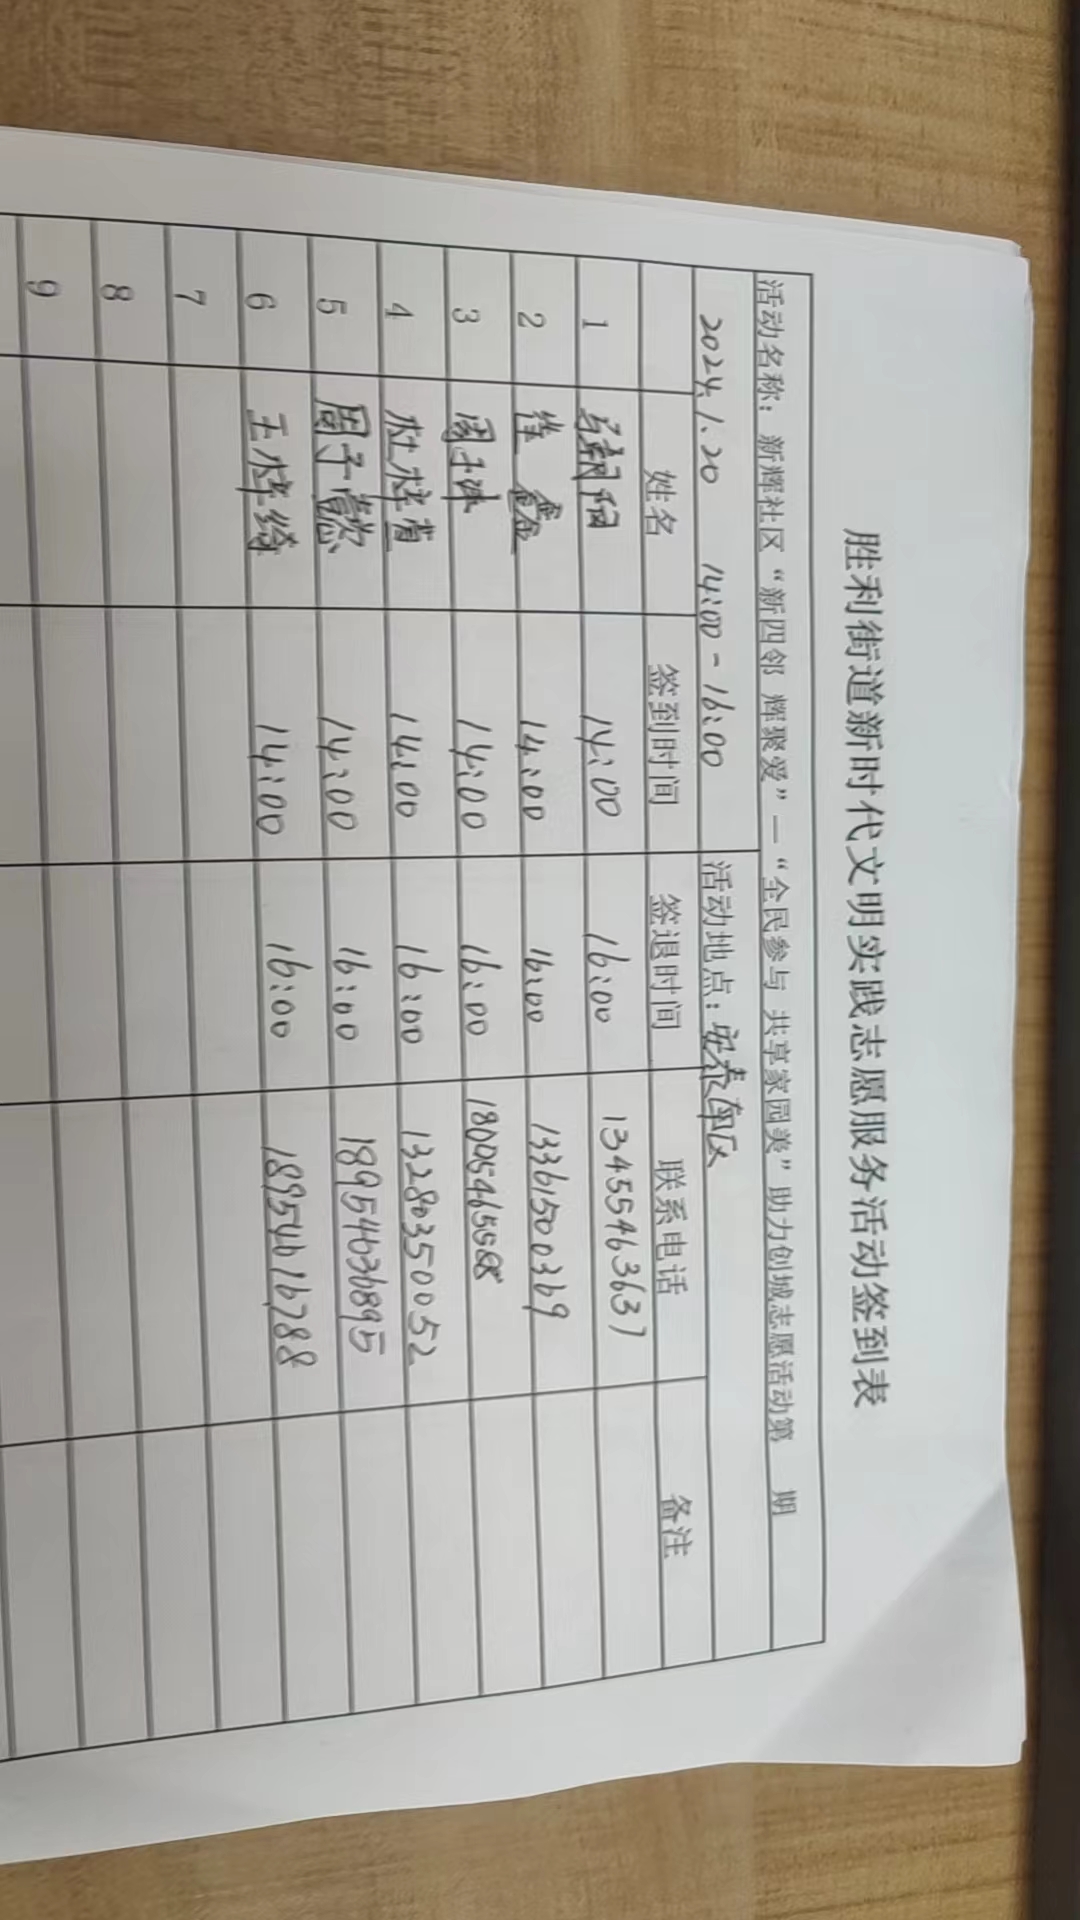 胜利街道新时代文明实践志愿服务活动签到表
活动名称：新辉社区“新四邻 辉聚爱”—“全民参与 共享家园美”助力创城志愿活动第 期
2024.1.20 14:00-16:00 活动地点：安泰南区
姓名 签到时间 签退时间 联系电话 备注
1 14:00 16:00 13455463637
2 崔鑫 14:00 16:00 13361500369
3 周子 14:00 16:00
4 杜梓萱 14:00 16:00 13280350052
5 周子懿 14:00 16:00 18954636895
6 王梓绮 14:00 16:00 18954616788
7
8
9